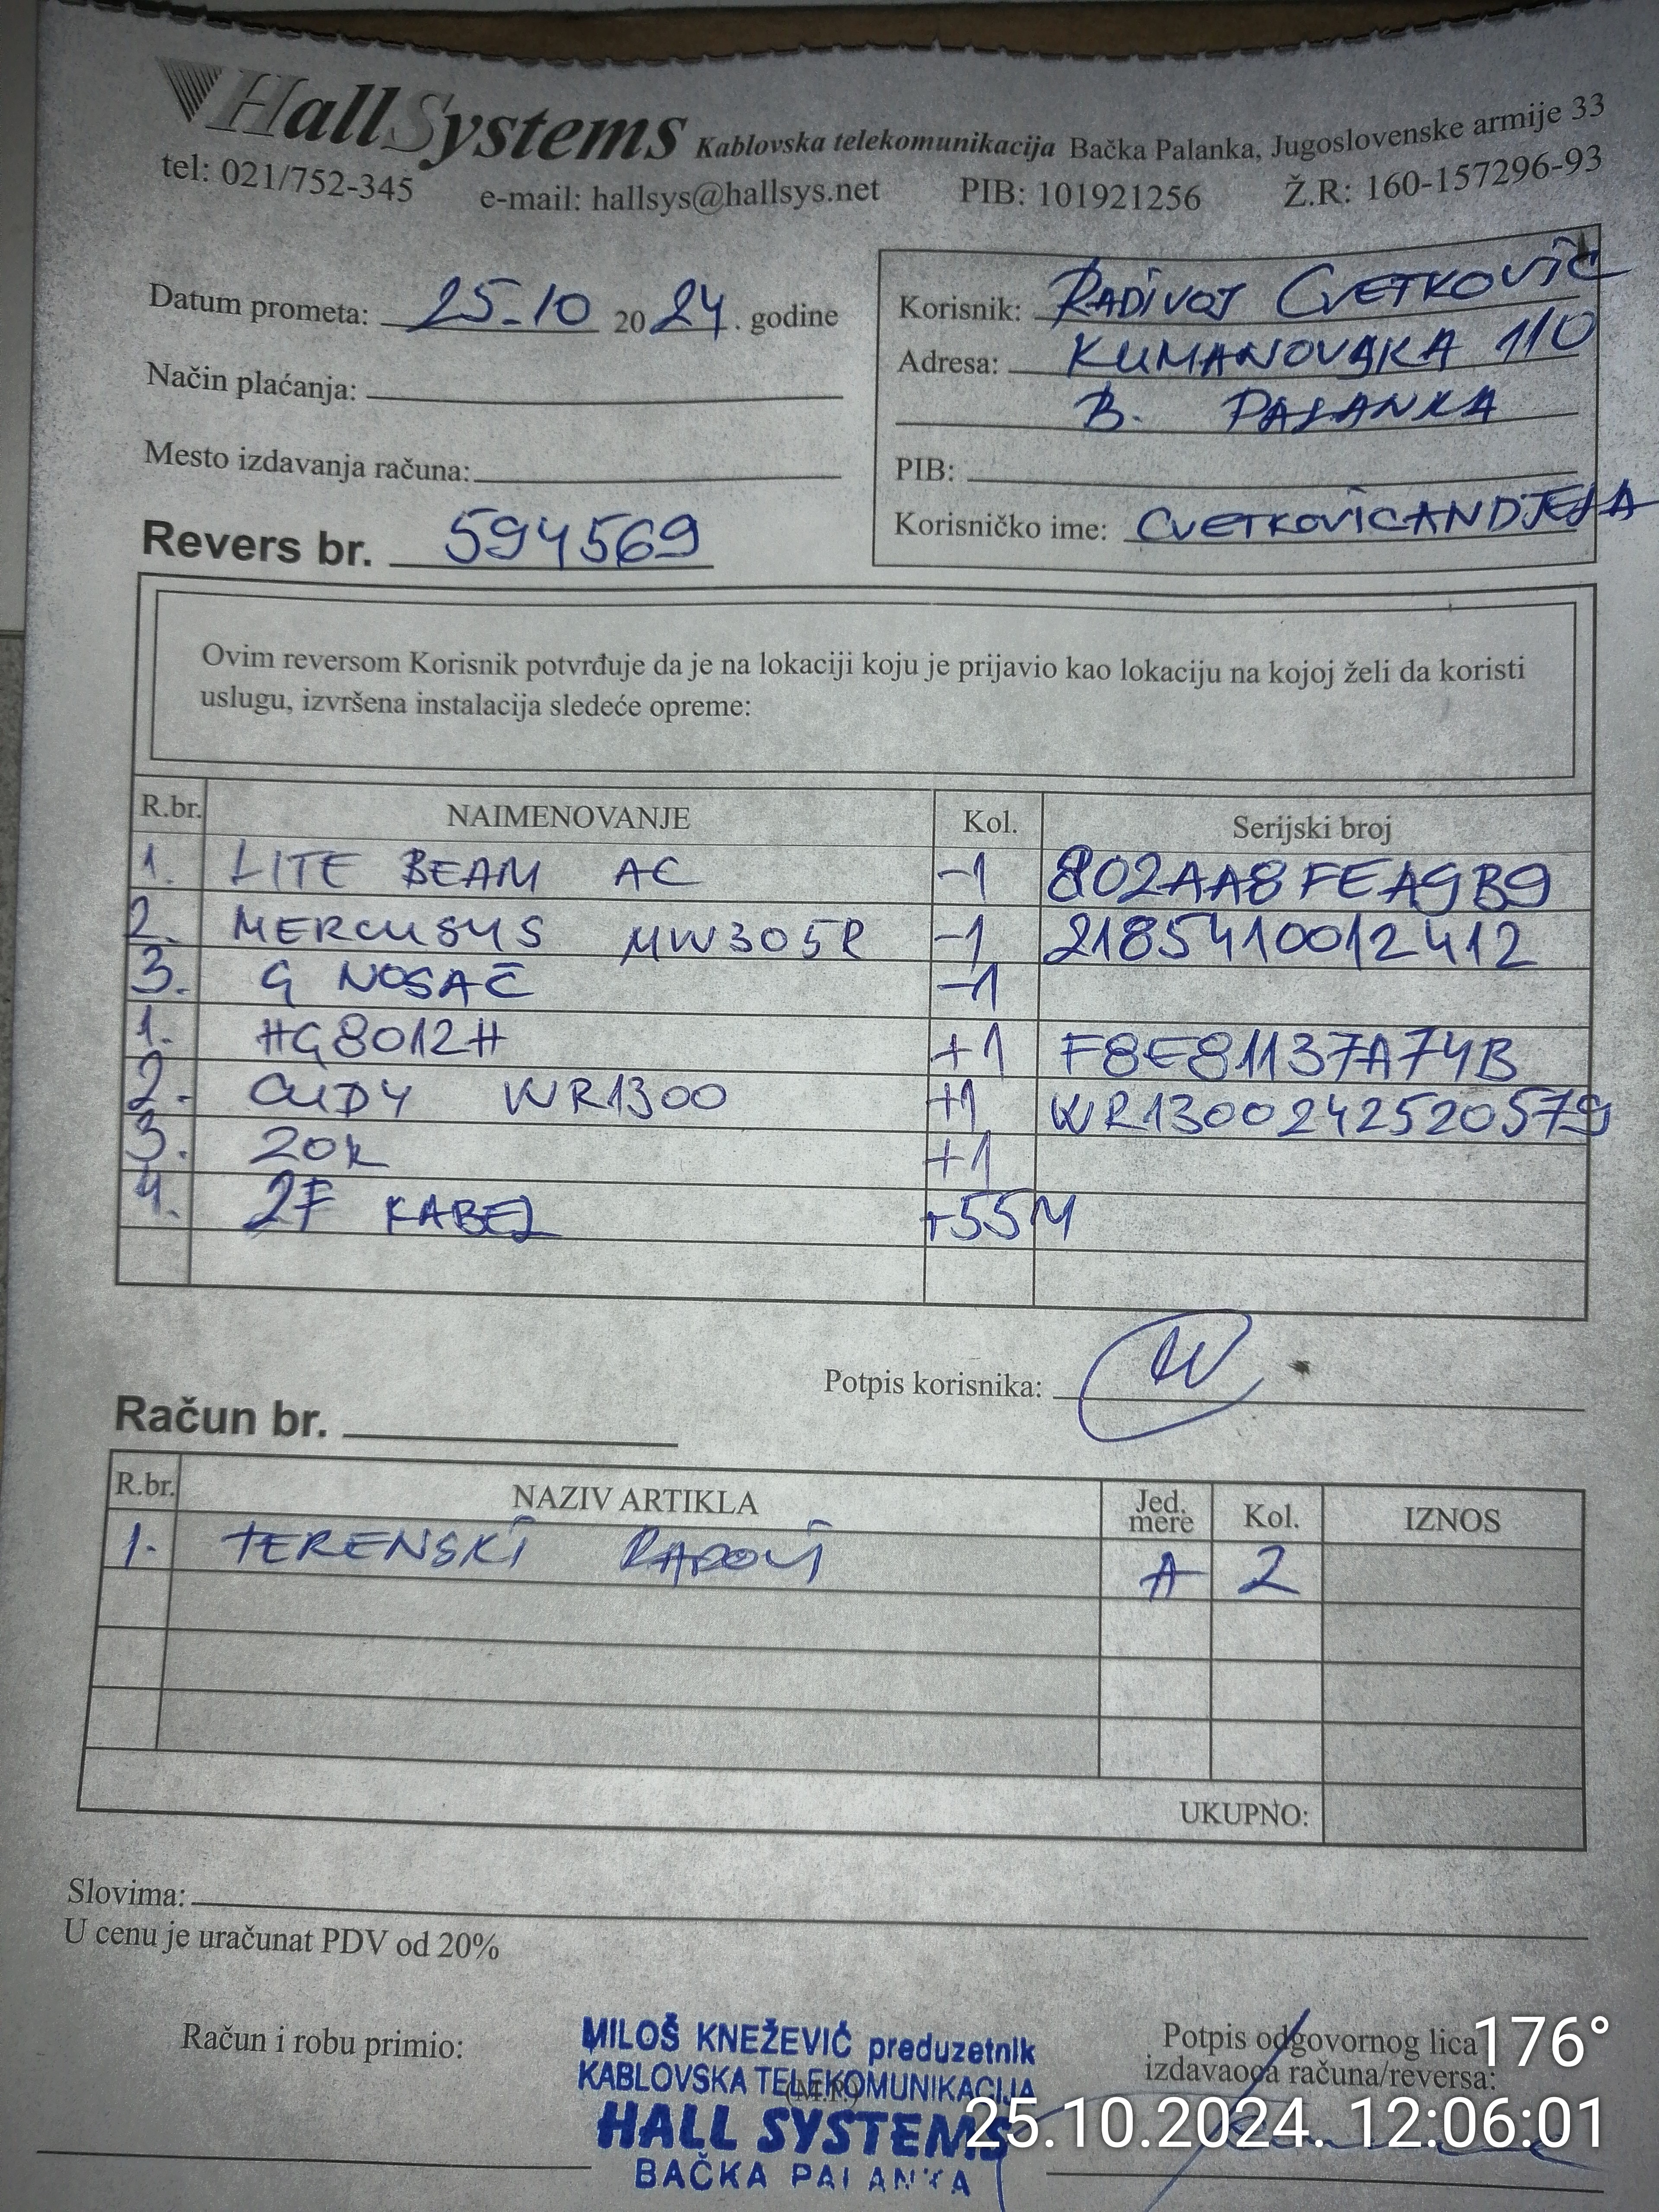 HallSystems Kablovska telekomunikacija Bačka Palanka, Jugoslovenske armije 33
tel: 021/752-345 e-mail: hallsys@hallsys.net PIB: 101921256 Ž.R: 160-157296-93
Datum prometa: 25-10 2024. godine
Način plaćanja:
Mesto izdavanja računa:
Revers br. 594569
Korisnik: RADIVOJ CVETKOVIĆ
Adresa: KUMANOVSKA 110
B. PALANKA
PIB:
Korisničko ime: CVETKOVICANDJELA
Ovim reversom Korisnik potvrđuje da je na lokaciji koju je prijavio kao lokaciju na kojoj želi da koristi
uslugu, izvršena instalacija sledeće opreme:
R.br. NAIMENOVANJE Kol. Serijski broj
1. LITE BEAM AC -1 802AA8FEA9B9
2. MERCUSYS MW305R -1 2185410012412
3. G NOSAČ -1
1. HG8012H +1 F8E81137A74B
2. CUDY WR1300 +1 WR1300242520579
3. ZOK +1
4. 2F KABEL +55M
Potpis korisnika:
Račun br.
R.br. NAZIV ARTIKLA Jed. mere Kol. IZNOS
1. TERENSKI RADOVI A 2
UKUPNO:
Slovima:
U cenu je uračunat PDV od 20%
Račun i robu primio:
MILOŠ KNEŽEVIĆ preduzetnik
KABLOVSKA TELEKOMUNIKACIJA
(M.P.)
HALL SYSTEMS
BAČKA PALANKA
Potpis odgovornog lica
izdavaoca računa/reversa:
176°
25.10.2024. 12:06:01